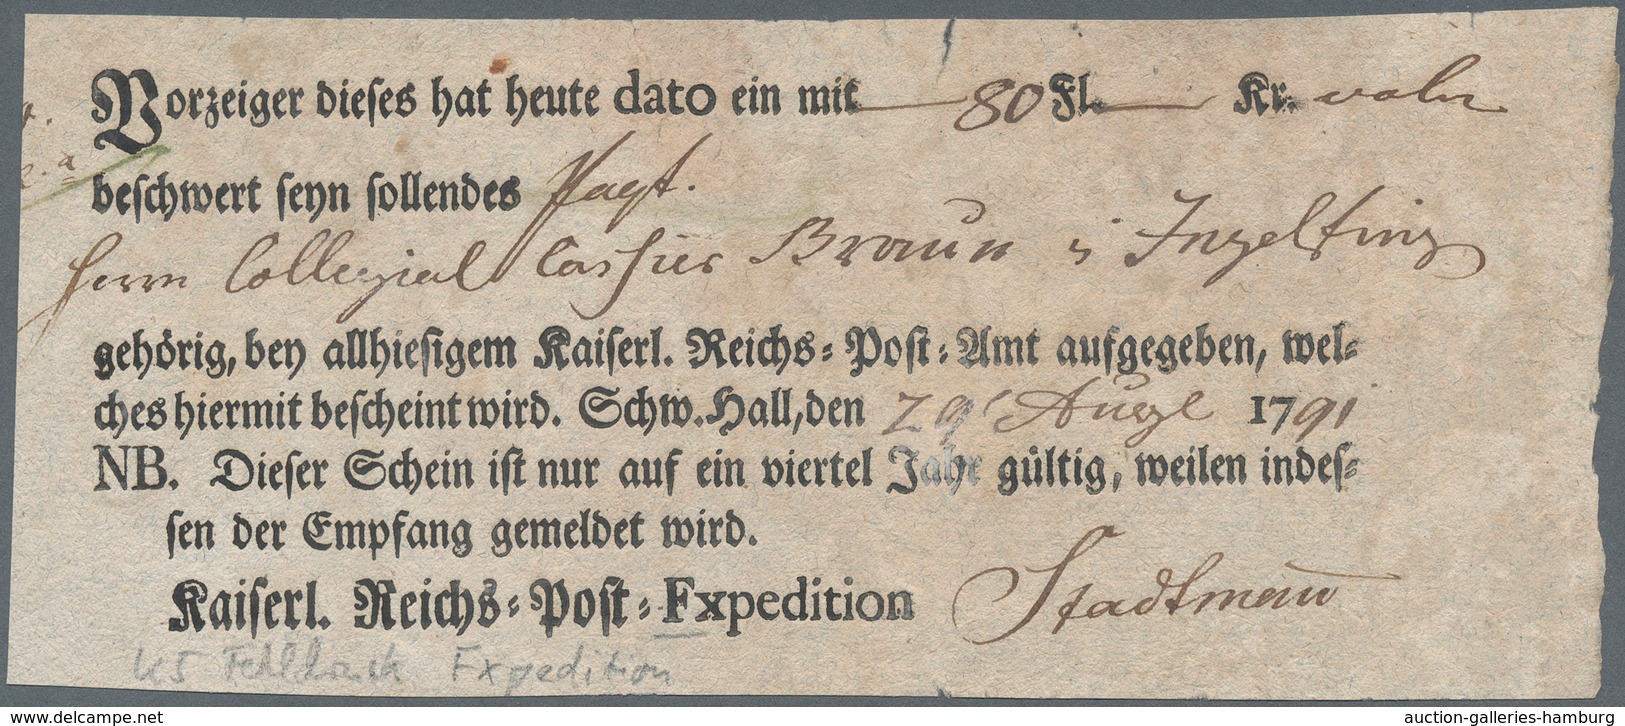 Vorzeiger dieses hat heute dato ein mit 80 Fl. Kr.
beschwert seyn sollendes Paqt.
Herrn Collegial Cassier Braun i Ingelfing
gehörig, bey allhiesigem Kaiserl. Reichs-Post-Amt aufgegeben, wel-
ches hiermit bescheint wird. Schw. Hall, den 29t Augl 1791
NB. Dieser Schein ist nur auf ein viertel Jahr gültig, weilen indes-
sen der Empfang gemeldet wird.
Kaiserl. Reichs-Post-Fxpedition Stadtmann
Fehldruck Fxpedition
auction-galleries-hamburg
www.delcampe.net